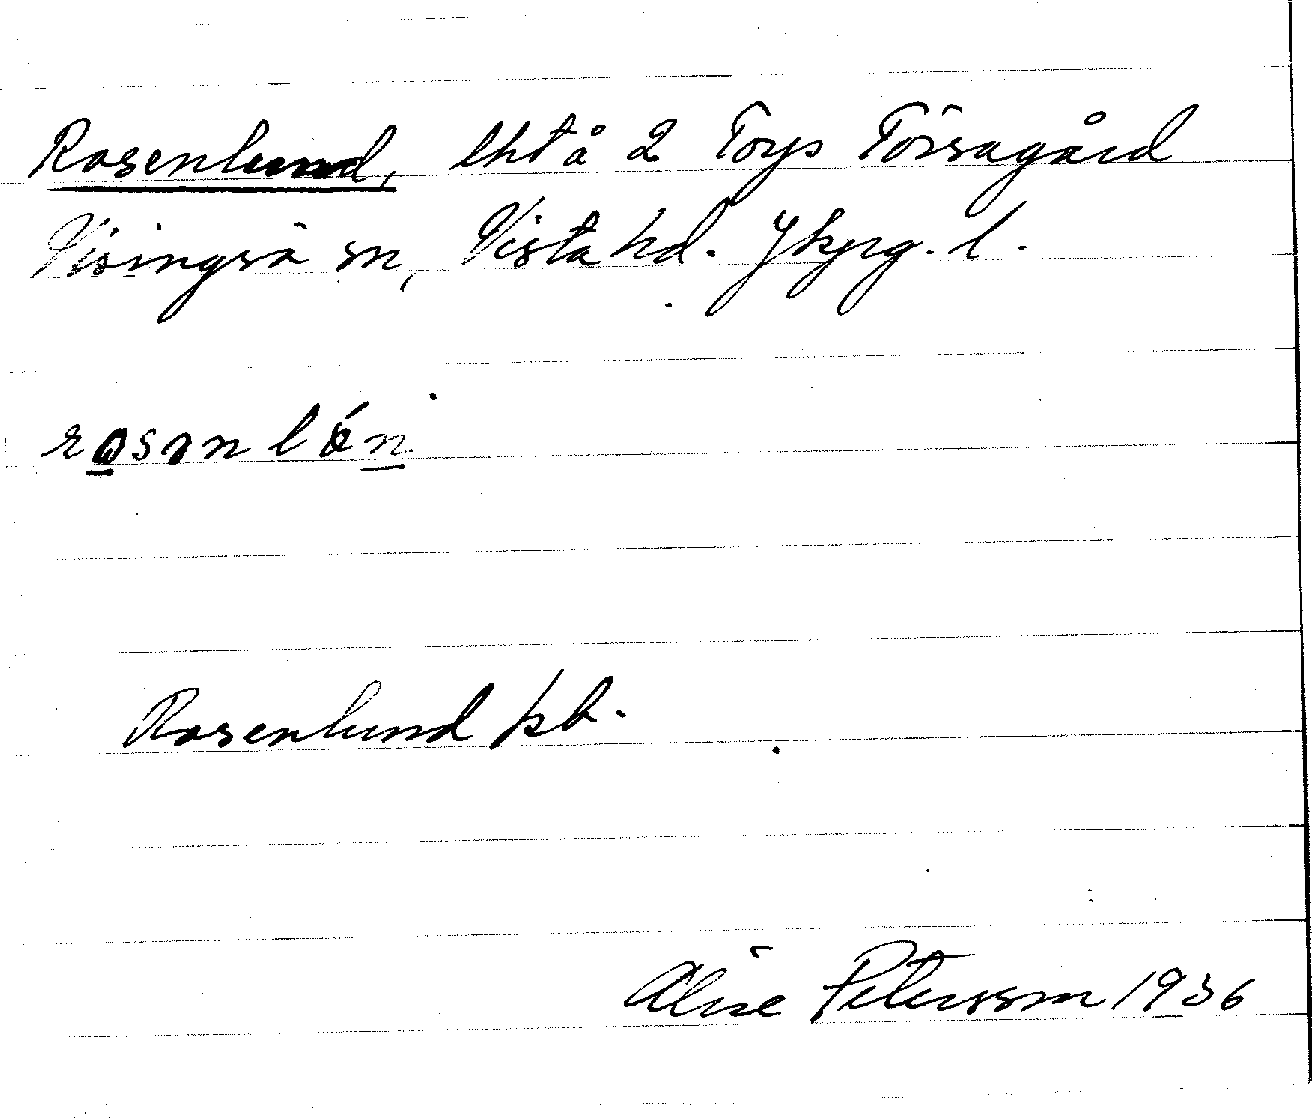 Rosenlund, lht å 2 Torps Törsagård
Visingsö sn, Vista hd. Jkpg. l.
rosanlón
Rosenlund pb.
Alice Petersson 1936